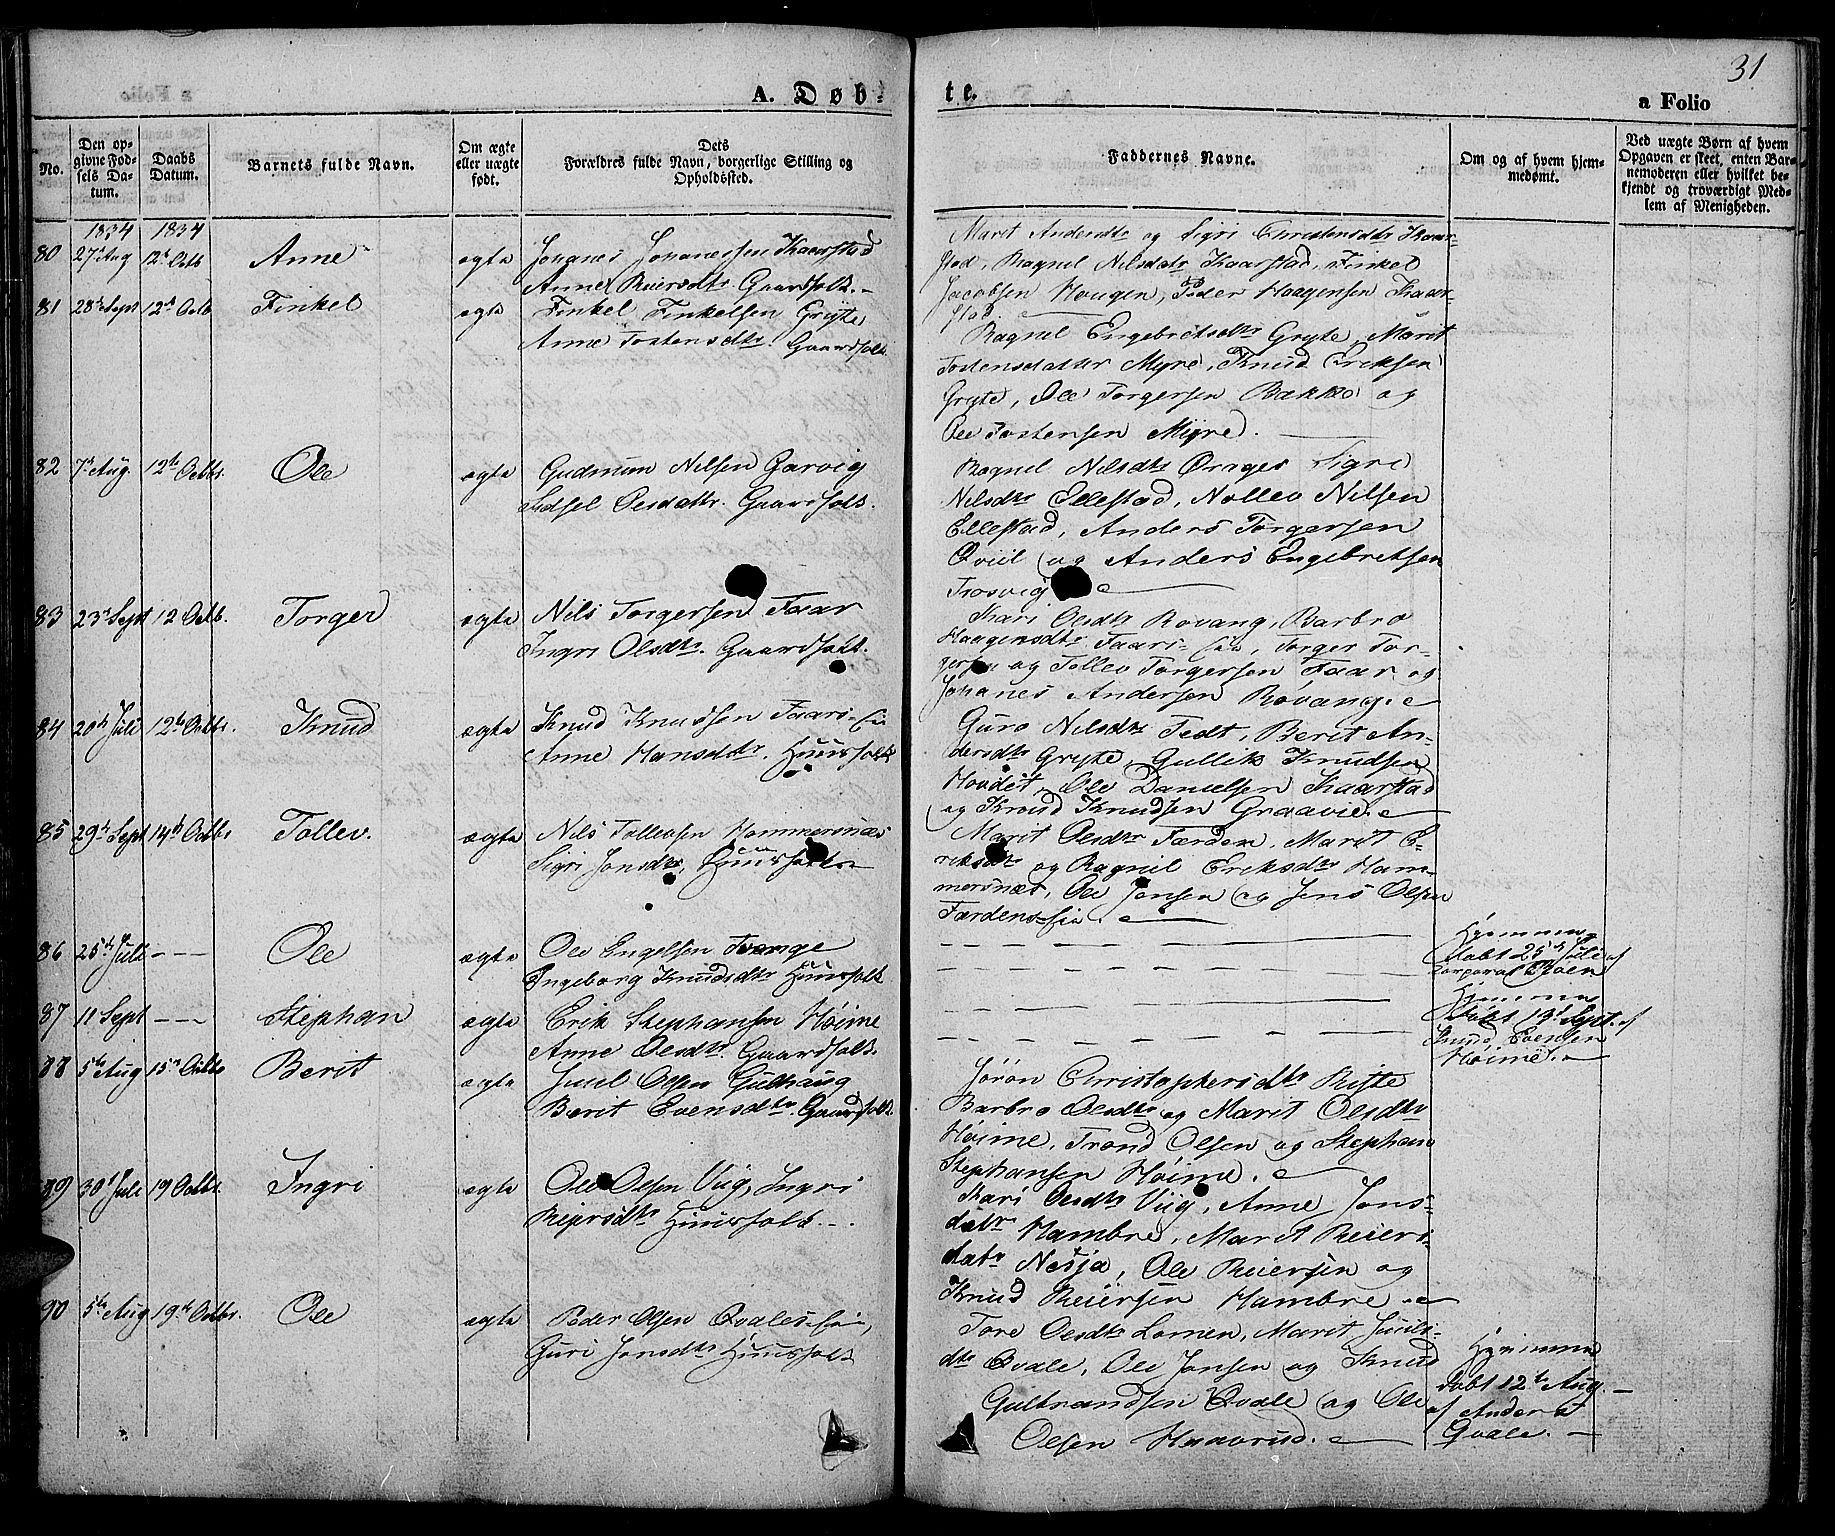 31
A. Døb-
te.
a Folio
No.
Den op-
givne Fød-
sels Da-
tum.
Daabs
Datum.
Barnets fulde Navn.
Om ægte
eller uægte
født.
Dets
Forældres fulde Navn, borgerlige Stilling og
Opholdssted.
Faddernes Navne.
Om og af hvem hjem-
medømt.
Ved uægte Børn af hvem
Opgaven er skeet, enten Bar-
nemoderen eller hvilket be-
kjendt og troværdigt Med-
lem af Menigheden.
1834 1834
80 27d Aug 12t Octb Anne ægte Johanes Johanessen Kaarstad
Anne Reiersdtr Gaardfolk.
Marit Andersdtr og Sigri Christensdtr Kaar-
stad, Ragnil Nilsdatr Kaarstad, Finkel
Jacobsen Hougen, Peder Haagensen Kaar-
stad.
81 28de Sept 12te Octb Finkel ægte Finkel Finkelsen Gryte,
Anne Tostensdtr. Gaardfolk.
Ragnil Engebretsdtr Gryte, Marit
Tostensdatter Myre, Knud Eriksen
Gryte, Ole Torgersen Bække og
Ole Tostensen Myre.
82 7de Aug. 12te Octbr. Ole ægte Gudmun Nilsen Garvig
Sidsel Olesdatr. Gaardfolk.
Ragnil Nilsdtr Sigri
Nilsdtr Ellestad, Nollev Nilsen
Ellestad, Anders Torgersen
Qviil og Anders Engebretsen
Trosvig
83 23d Sept 12 Octb. Torger ægte Nils Torgersen Faar
Ingri Olsdtr. Gaardfolk.
Kari Olesdtr Rovang, Barbro
Haagensdtr Faars-Eie, Torger Tor-
gersen og Tollev Torgersen Faar og
Johanes Andersen Røvang.
84 20de Juli 12te Octbr. Knud ægte Knud Knudsen Faars-Eie
Anne Hansdtr. Huusfolk
Guro Nilsdtr Tedt, Berit An-
dersdtr Gryte, Gullik Knudsen
Hovdet, Ole Danielsen Kaarstad
og Knud Knudsen Graavie.
85 29de Sept 14de Octbr Tollev. ægte Nils Tollevsen Hammersnæs
Sigri Jonsdtr, Huusfolk
Marit Olesdtr Færden, Marit E-
riksdtr og Ragnil Eriksdtr Ham-
mersnæs, Ole Jonsen og Jens Olsen
Færdens-Eie.
86 25de Juli - - - Ole ægte Ole Engelsen Trange
Ingeborg Knudsdtr Huusfolk
Hjemme
døbt 25de Juli af
Corporal Røen
87 11 Sept - - - Stephan ægte Erik Stephansen Høime
Anne Olesdtr. Gaardfolk.
Hjemme
døbt 19d Sept. af
Knud Evensen
Høime.
88 5te Aug 15de Octbr Berit ægte Juul Olsen Gulhaug
Berit Evensdtr. Gaardfolk
Jørøn Christophersdtr Riste
Barbro Olesdtr og Marit Olesdtr
Høime, Trond Olsen og Stephan
Stephansen Høime.
89 30d Juli 19 Octbr. Ingri ægte Ole Olsen Viig, Ingri
Reiersdtr Huusfolk.
Kari Olesdtr Viig, Anne Jons-
datr Hambre, Marit Reiers-
datr Nesja, Ole Reiersen og
Knud Reiersen Hambre.
90 5te Aug 19de Octbr. Ole ægte Peder Olsen Qvales-Eie,
Guri Jonsdtr Huusfolk
Tore Olesdtr Lomen, Marit Juuls-
dtr Qvale, Ole Jonsen og Knud
Gulbrandsen Qvale og Ole
Olsen Haavrud.
Hjemme
døbt 12te Aug.
af Anders
Qvale.